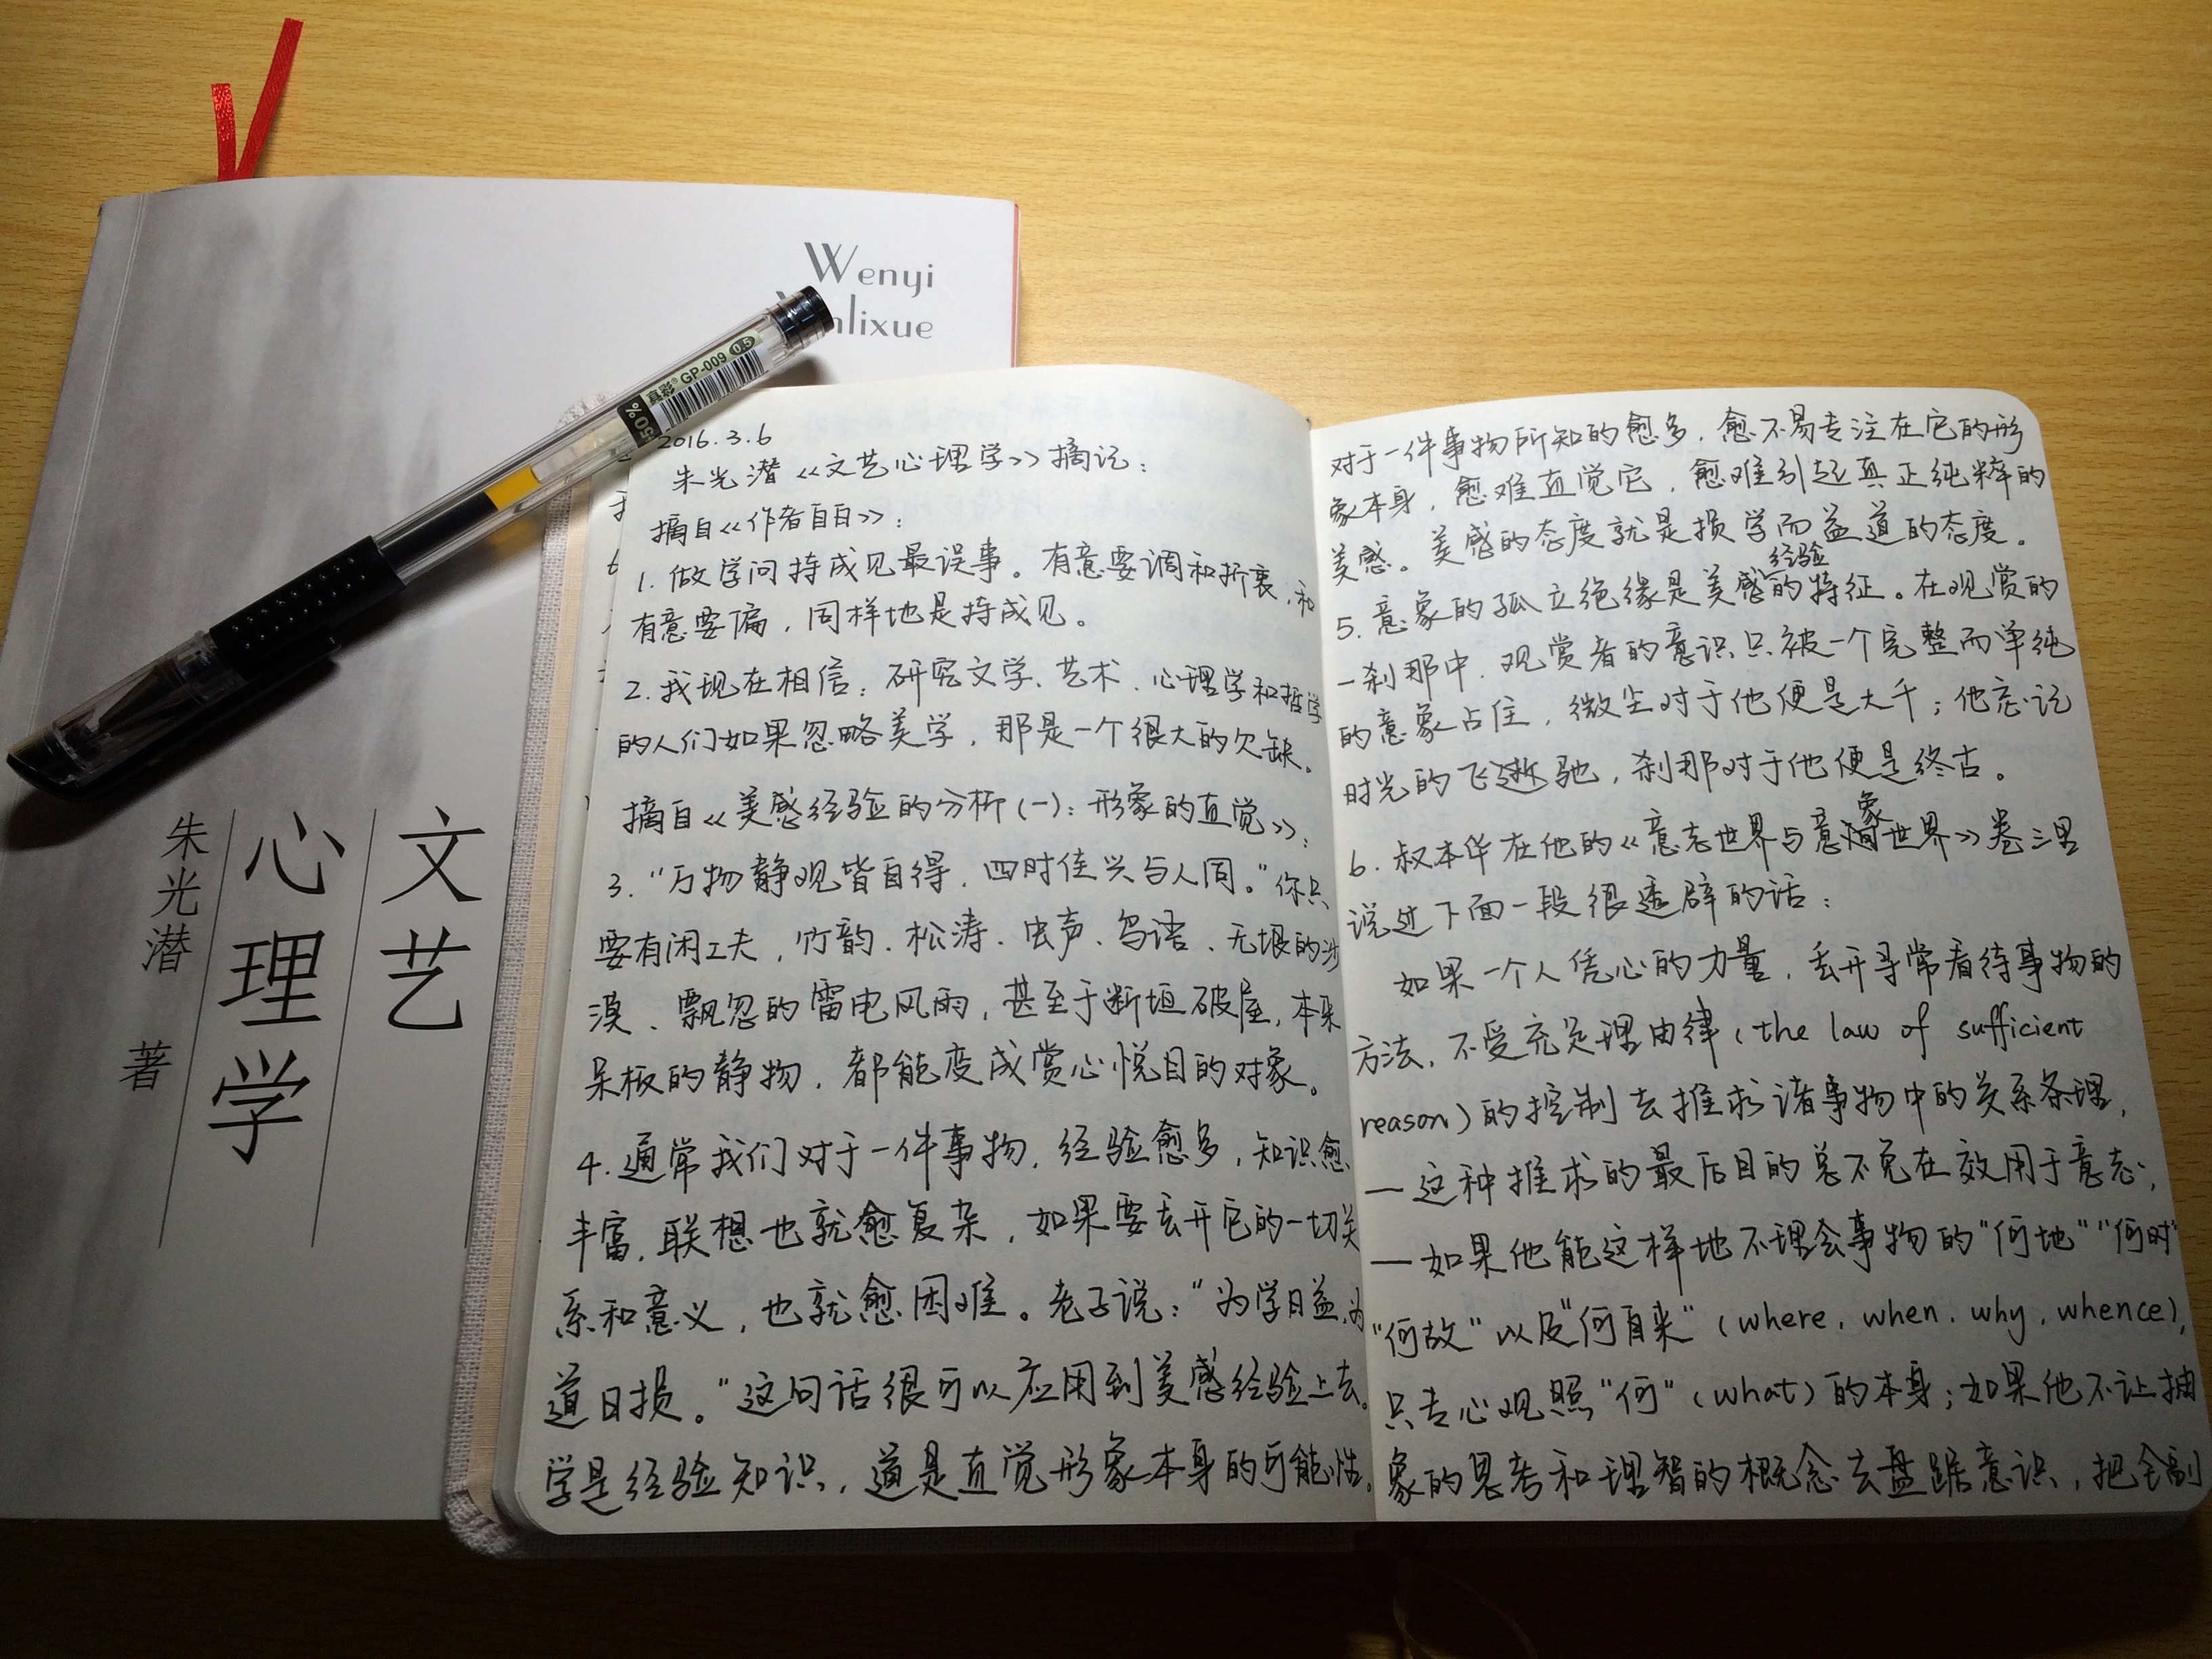 Wenyi
nlixue
文艺
心理学
朱光潜 著
GP-009 0.5
50%
2016.3.6
朱光潜《文艺心理学》摘记：
摘自《作者自白》：
1. 做学问持成见最误事。有意要调和折衷，和
有意要偏，同样地是持成见。
2. 我现在相信：研究文学、艺术、心理学和哲学
的人们如果忽略美学，那是一个很大的欠缺。
摘自《美感经验的分析（一）：形象的直觉》：
3. “万物静观皆自得，四时佳兴与人同。”你只
要有闲工夫，竹韵、松涛、虫声、鸟语、无垠的沙
漠、飘忽的雷电风雨，甚至于断垣破屋，本来
呆板的静物，都能变成赏心悦目的对象。
4. 通常我们对于一件事物，经验愈多，知识愈
丰富，联想也就愈复杂，如果要丢开它的一切关
系和意义，也就愈困难。老子说：“为学日益，为
道日损。”这句话很可以应用到美感经验上去。
学是经验知识，道是直觉形象本身的可能性。
对于一件事物所知的愈多，愈不易专注在它的形
象本身，愈难直觉它，愈难引起真正纯粹的
美感。美感的态度就是损学而益道的态度。
5. 意象的孤立绝缘是美感经验的特征。在观赏的
一刹那中，观赏者的意识只被一个完整而单纯
的意象占住，微尘对于他便是大千；他忘记
时光的飞逝驰，刹那对于他便是终古。
6. 叔本华在他的《意志世界与意象世界》卷三里
说过下面一段很透辟的话：
如果一个人凭心的力量，丢开寻常看待事物的
方法，不受充足理由律（the law of sufficient
reason）的控制去推求诸事物中的关系条理，
—这种推求的最后目的总不免在效用于意志；
—如果他能这样地不理会事物的“何地”“何时”
“何故”以及“何自来”（where, when, why, whence），
只专心观照“何”（what）的本身；如果他不让抽
象的思考和理智的概念去盘踞意识，把全副